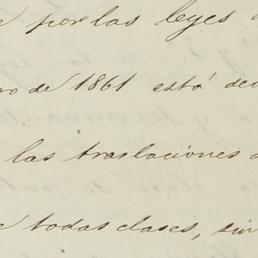 e por las leyes
ro de 1861 está de
las traslaciones
e todas clases, sin